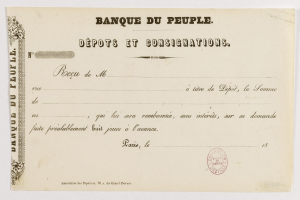 BANQUE DU PEUPLE.
DÉPOTS ET CONSIGNATIONS.
N°
BANQUE DU PEUPLE.
Reçu de M
rue à titre de Dépôt, la Somme
de
en , qui lui sera remboursée, sans intérêts, sur sa demande
faite préalablement huit jours à l'avance.
Paris, le 18